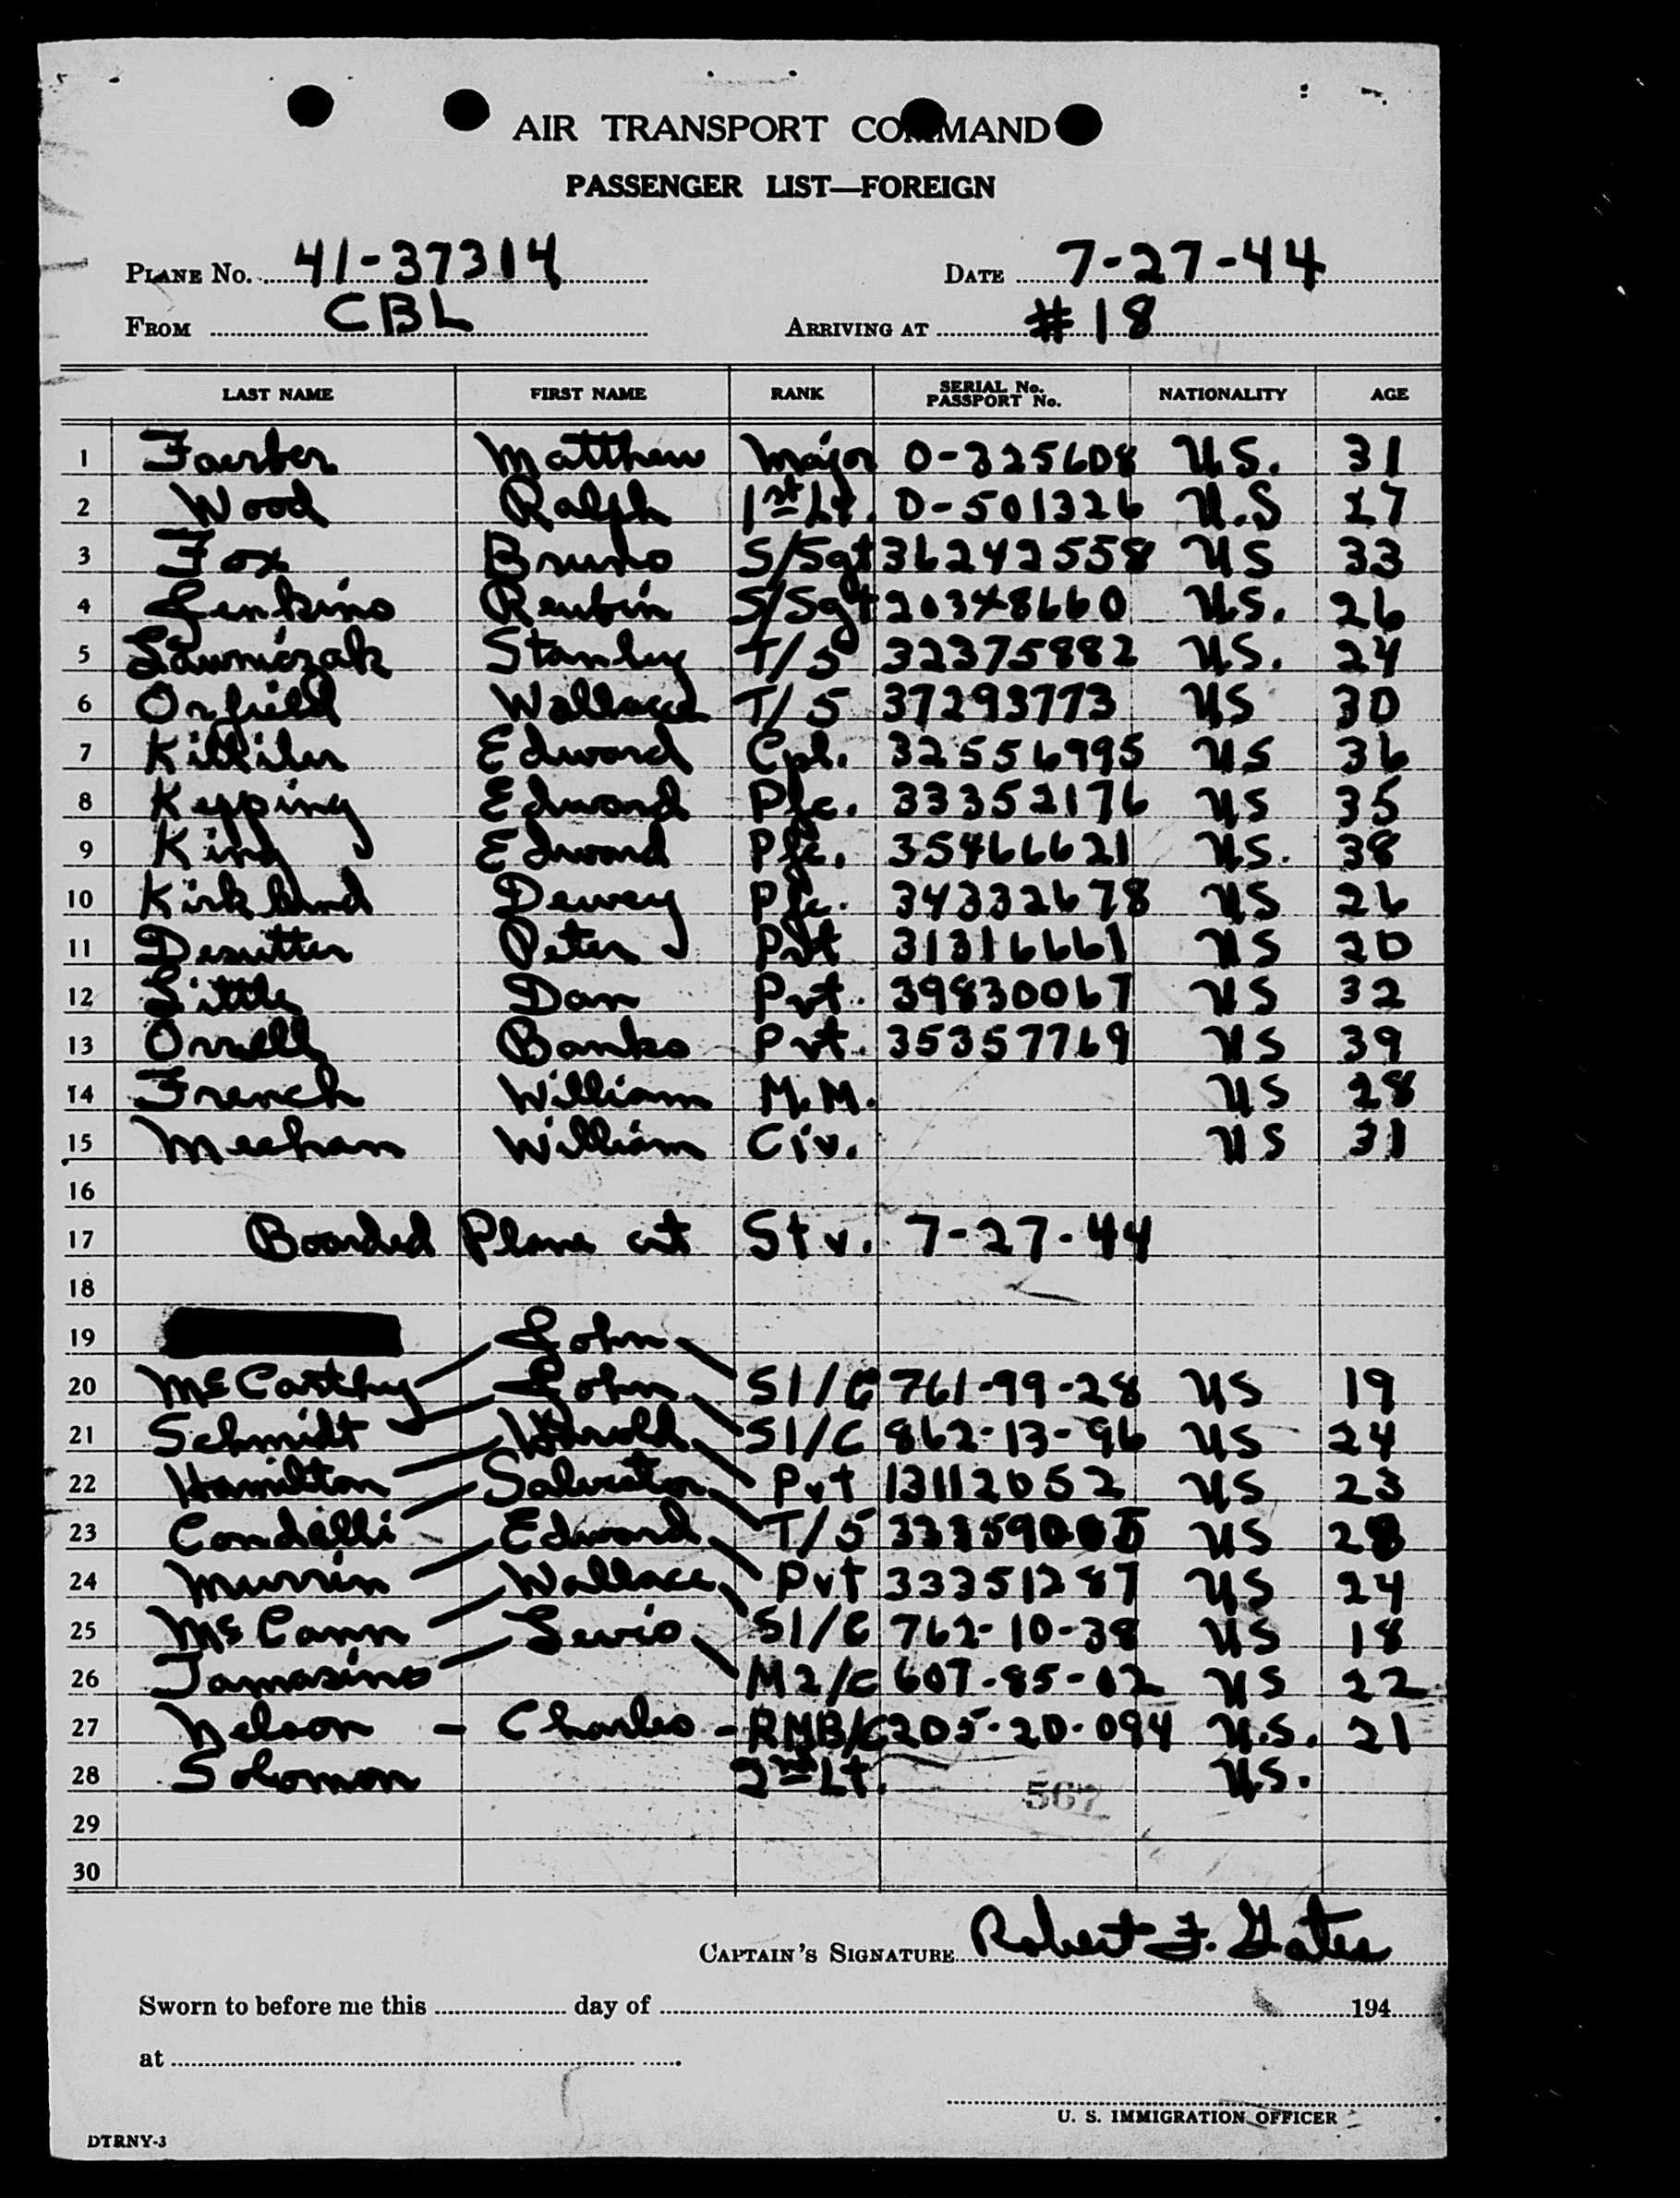 AIR TRANSPORT COMMAND
PASSENGER LIST—FOREIGN
PLANE No. 41-37314 DATE 7-27-44
FROM CBL ARRIVING AT #18
LAST NAME FIRST NAME RANK SERIAL No. PASSPORT No. NATIONALITY AGE
1 Faerber Matthew Major O-325608 U.S. 31
2 Wood Ralph 1st Lt. O-501326 U.S 27
3 Fox Bruno S/Sgt 36242558 US 33
4 Jenkins Reubin S/Sgt 20348660 U.S. 26
5 Lawniczak Stanley T/5 32375882 U.S. 24
6 Orfield Wallace T/5 37293773 US 30
7 Killiler Edward Cpl. 32556995 US 36
8 Kepping Edward Pfc. 33352176 US 35
9 King Edward Pfc. 35466621 U.S. 38
10 Kirkland Dewey Pfc. 34332678 US 26
11 Desutter Peter Pvt 31316661 US 20
12 Little Dan Pvt. 39830067 US 32
13 Orrell Banks Pvt. 35357769 US 39
14 French William M.M. US 28
15 Meehan William Civ. US 31
16
17 Boarded Plane at Stv. 7-27-44
18
19 John
20 McCarthy John S1/C 761-99-28 US 19
21 Schmidt Harold S1/C 862-13-96 US 24
22 Hamilton Salvator Pvt 13112052 US 23
23 Condelli Edward T/5 US 28
24 Murrin Wallace Pvt 33351287 US 24
25 McCann Lewis S1/C 762-10-38 US 18
26 Tamasino M2/C 607-85-02 US 22
27 Nelson - Charles - RMB/C 205-20-094 U.S. 21
28 Solomon 2nd Lt. U.S.
567
29
30
CAPTAIN'S SIGNATURE Robert F. Gates
Sworn to before me this day of 194
at
U. S. IMMIGRATION OFFICER
DTRNY-3